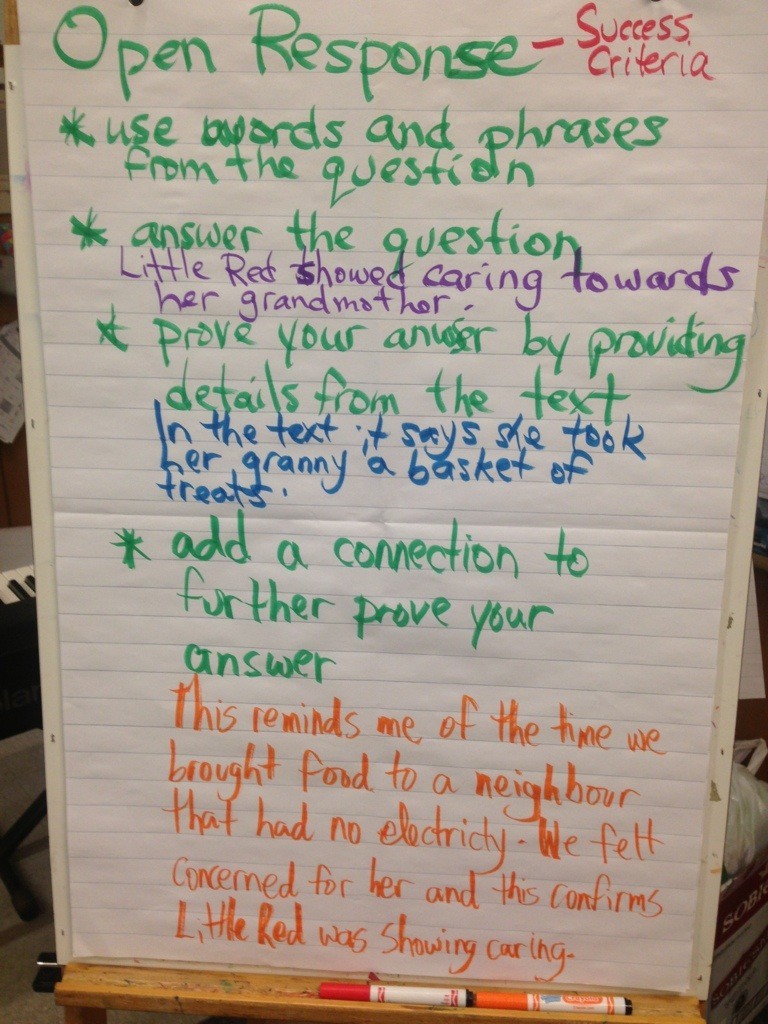 Open Response - Success Criteria
* use words and phrases
from the question
* answer the question
Little Red showed caring towards
her grandmother.
* prove your answer by providing
details from the text
In the text it says she took
her granny a basket of
treats.
* add a connection to
further prove your
answer
This reminds me of the time we
brought food to a neighbour
that had no electricty. We felt
concerned for her and this confirms
Little Red was showing caring.